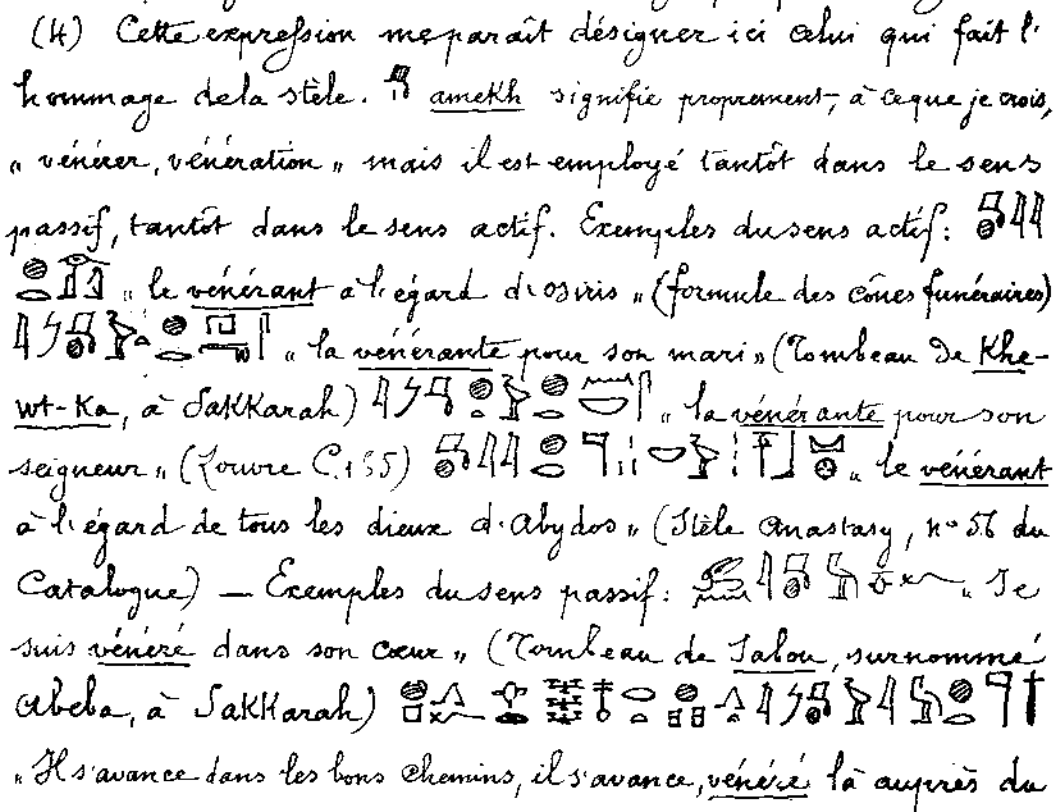 (4) Cette expression me paraît désigner ici celui qui fait l'
hommage de la stèle. amekh signifie proprement, à ce que je crois,
„ vénérer, vénération „ mais il est employé tantôt dans le sens
passif, tantôt dans le sens actif. Exemples du sens actif :
„ le vénérant à l'égard d'Osiris „ (formule des cônes funéraires)
„ la vénérante pour son mari „ (Tombeau de Khe-
wt-Ka, à Sakkarah) „ la vénérante pour son
seigneur „ (Louvre C. 155) „ le vénérant
à l'égard de tous les dieux d'Abydos „ (Stèle Anastasy, n° 56 du
Catalogue) — Exemples du sens passif : „ Je
suis vénéré dans son cœur „ (Tombeau de Sabou, surnommé
Abeba, à Sakkarah)
„ Il s'avance dans les bons chemins, il s'avance, vénéré là auprès du